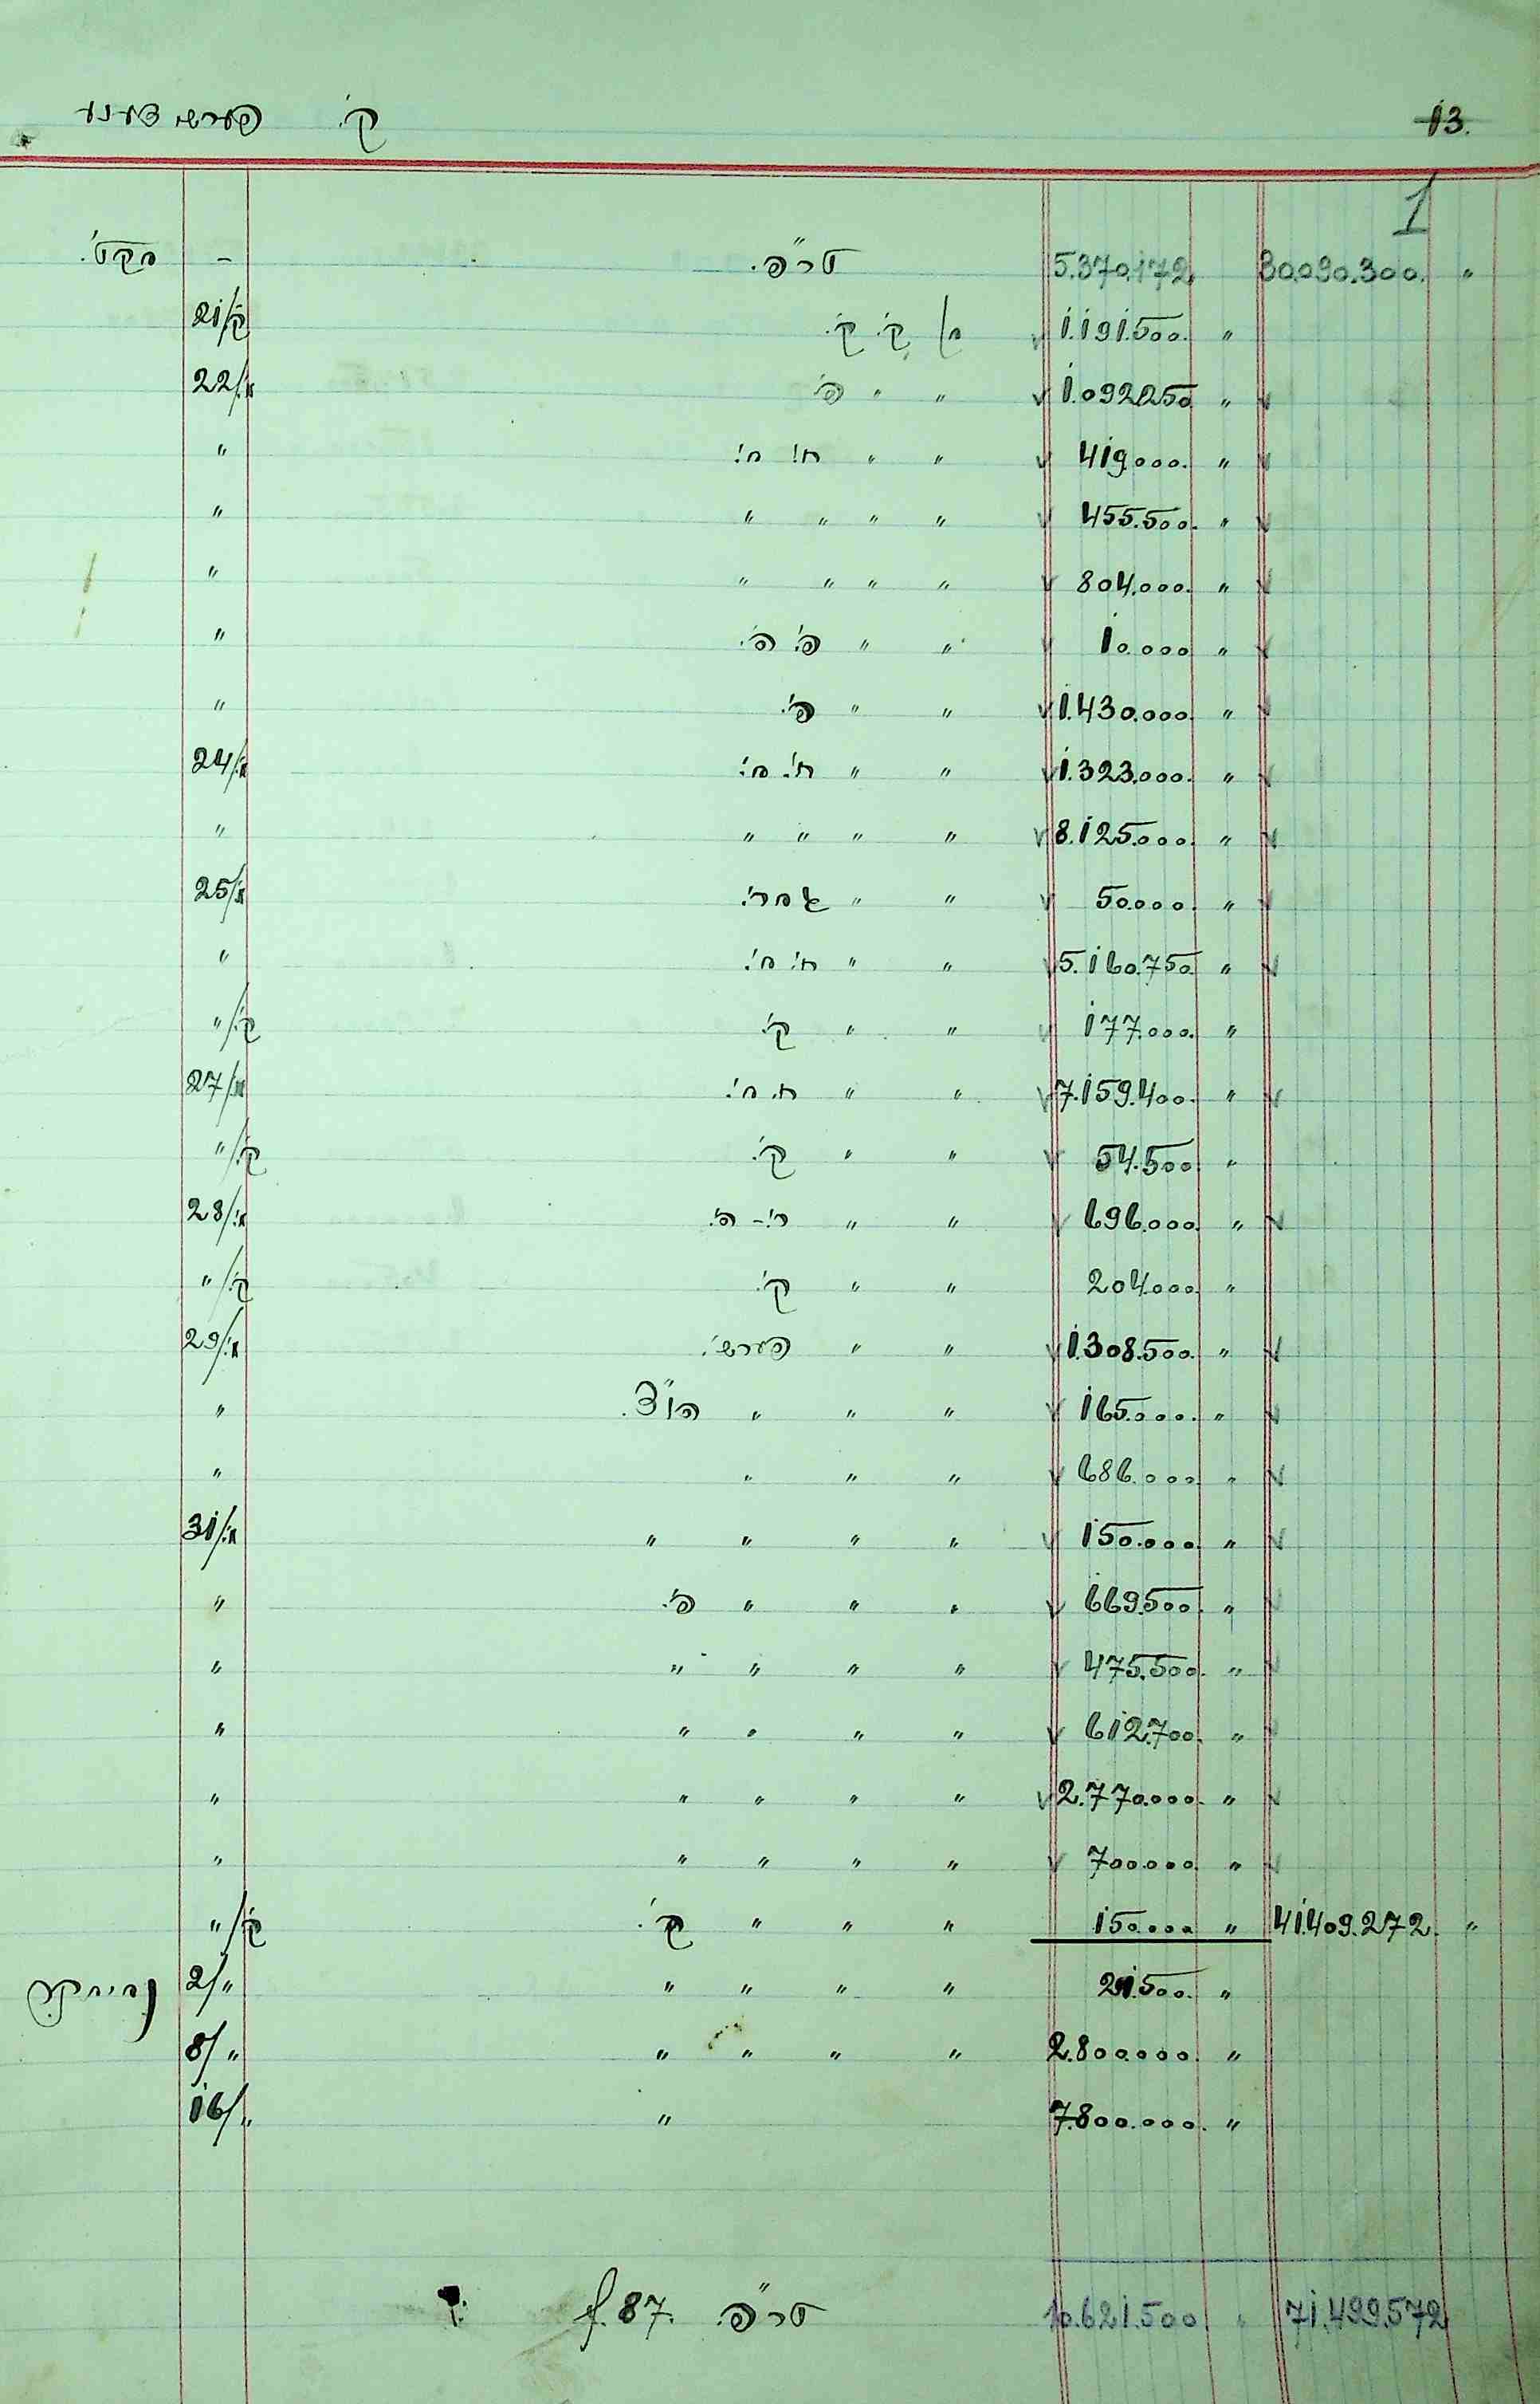 פערשידענע ק'. 13.
1
אקט'. - טר"פ. 5.370.172 30.090.300. "
21/ק' א/ ק'. ק'. 1.191.500. "
22/א' " " פ' 1.092.250 "
" " " ח'. א'. 419.000. "
" " " " " 455.500. "
" " " " " 804.000. "
" " " פ'. פ'. 10.000 "
" " " פ'. 1.430.000. "
24/א' " " ח'. א'. 1.323.000. "
" " " " " 8.125.000. "
25/א' " " 50.000. "
" " " ח'. א'. 5.160.750 "
"/ק' " " ק'. 177.000. "
27/א' " " ח'. א'. 7.159.400. "
"/ק' " " ק'. 54.500 "
28/א' " " 696.000. "
"/ק' " " ק'. 204.000 "
29/א' " " פערשי'. 1.308.500. "
" " " " 165.000. "
" " " " 686.000 "
31/א' " " " " 150.000 "
" " " " פ'. 669.500. "
" " " " " 475.500. "
" " " " " 612.700. "
" " " " " 2.770.000. "
" " " " " 700.000. "
"/ק' " " " ק'. 150.000 " 41.409.272. "
2/" " " " " 21.500. "
8/" " " " " 2.800.000. "
16/" " 7.800.000. "
טר"פ. f. 87. 10.621.500. " 71.499.572